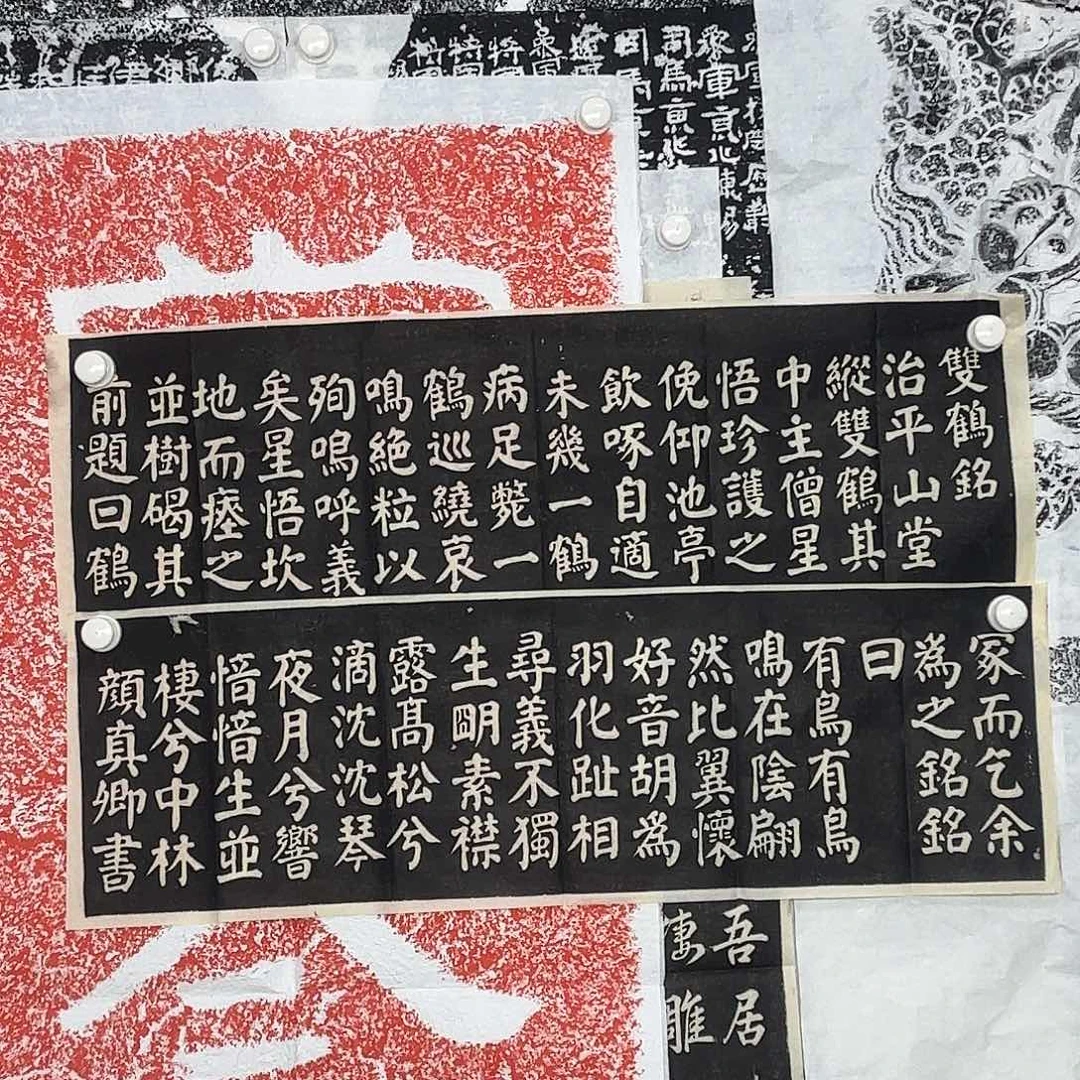 雙鶴銘
治平山堂
縱雙鶴其
中主僧星
悟珍護之
俛仰池亭
飲啄自適
未幾一鶴
病足斃一
鶴巡繞哀
鳴絶粒以
殉嗚呼義
矣星悟坎
地而瘞之
並樹碣其
前題曰鶴
冢而乞余
為之銘銘
曰
有鳥有鳥
鳴在陰翩
然比翼懷
好音胡為
羽化趾相
尋義不獨
生朙素襟
露髙松兮
滴沈沈琴
夜月兮響
愔愔生並
棲兮中林
顔真卿書
吾居